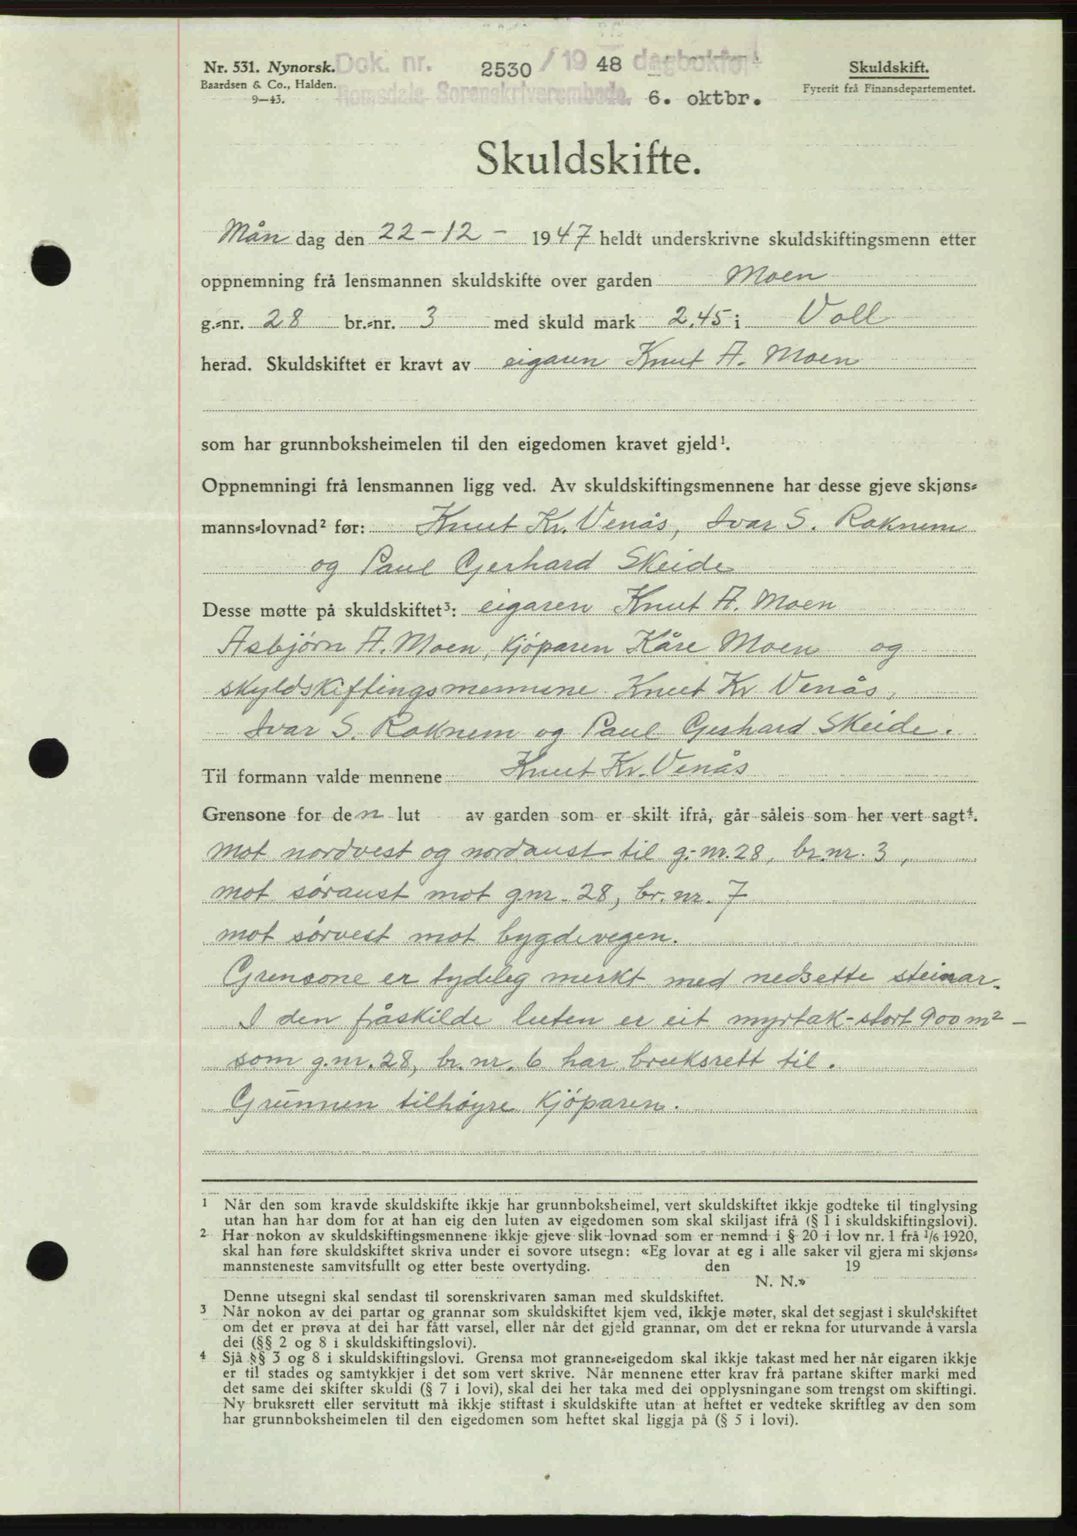 Nr. 531. Nynorsk.
Baardsen & Co., Halden.
9—43.
Dok. nr. 2530 / 19 48 dagbokført
Romsdals Sorenskriverembede. 6. oktbr.
Skuldskift.
Fyrerit frå Finansdepartementet.
Skuldskifte.
Mån dag den 22-12- 1947 heldt underskrivne skuldskiftingsmenn etter
oppnemning frå lensmannen skuldskifte over garden Moen
g.-nr. 28 br.-nr. 3 med skuld mark 2.45 i Voll
herad. Skuldskiftet er kravt av eigaren Knut A. Moen
som har grunnboksheimelen til den eigedomen kravet gjeld¹.
Oppnemningi frå lensmannen ligg ved. Av skuldskiftingsmennene har desse gjeve skjøns-
manns-lovnad² før: Knut Kr. Venås, Ivar S. Roknem
og Paul Gerhard Skeide
Desse møtte på skuldskiftet³: eigaren Knut A. Moen
Asbjørn A. Moen, kjöparen Kåre Moen og
skyldskiftingsmennene Knut Kr Venås,
Ivar S. Roknem og Paul Gerhard Skeide.
Til formann valde mennene Knut Kr. Venås
Grensone for den lut av garden som er skilt ifrå, går såleis som her vert sagt⁴.
mot nordvest og nordaust til g.nr. 28, br.nr. 3,
mot søraust mot gnr. 28, br. nr. 7
mot sørvest mot bygdevegen.
Grensone er tydeleg merkt med nedsette steinar.
I den fråskilde luten er eit myrtak - stort 900 m² -
som g.nr. 28, br. nr. 6 har bruksrett til.
Grunnen tilhøyre kjöparen.
¹ Når den som kravde skuldskifte ikkje har grunnboksheimel, vert skuldskiftet ikkje godteke til tinglysing
utan han har dom for at han eig den luten av eigedomen som skal skiljast ifrå (§ 1 i skuldskiftingslovi).
² Har nokon av skuldskiftingsmennene ikkje gjeve slik lovnad som er nemnd i § 20 i lov nr. 1 frå 1/6 1920,
skal han føre skuldskiftet skriva under ei sovore utsegn: «Eg lovar at eg i alle saker vil gjera mi skjøns-
mannsteneste samvitsfullt og etter beste overtyding. den 19
N. N.»
Denne utsegni skal sendast til sorenskrivaren saman med skuldskiftet.
³ Når nokon av dei partar og grannar som skuldskiftet kjem ved, ikkje møter, skal det segjast i skuldskiftet
om det er prøva at dei har fått varsel, eller når det gjeld grannar, om det er rekna for uturvande å varsla
dei (§§ 2 og 8 i skuldskiftingslovi).
⁴ Sjå §§ 3 og 8 i skuldskiftingslovi. Grensa mot granne-eigedom skal ikkje takast med her når eigaren ikkje
er til stades og samtykkjer i det som vert skrive. Når mennene etter krav frå partane skifter marki med
det same dei skifter skuldi (§ 7 i lovi), skal dei her taka med dei opplysningane som trengst om skiftingi.
Ny bruksrett eller servitutt må ikkje stiftast i skuldskifte utan at heftet er vedteke skriftleg av den som
har grunnboksheimelen til den eigedomen som heftet skal liggja på (§ 5 i lovi).